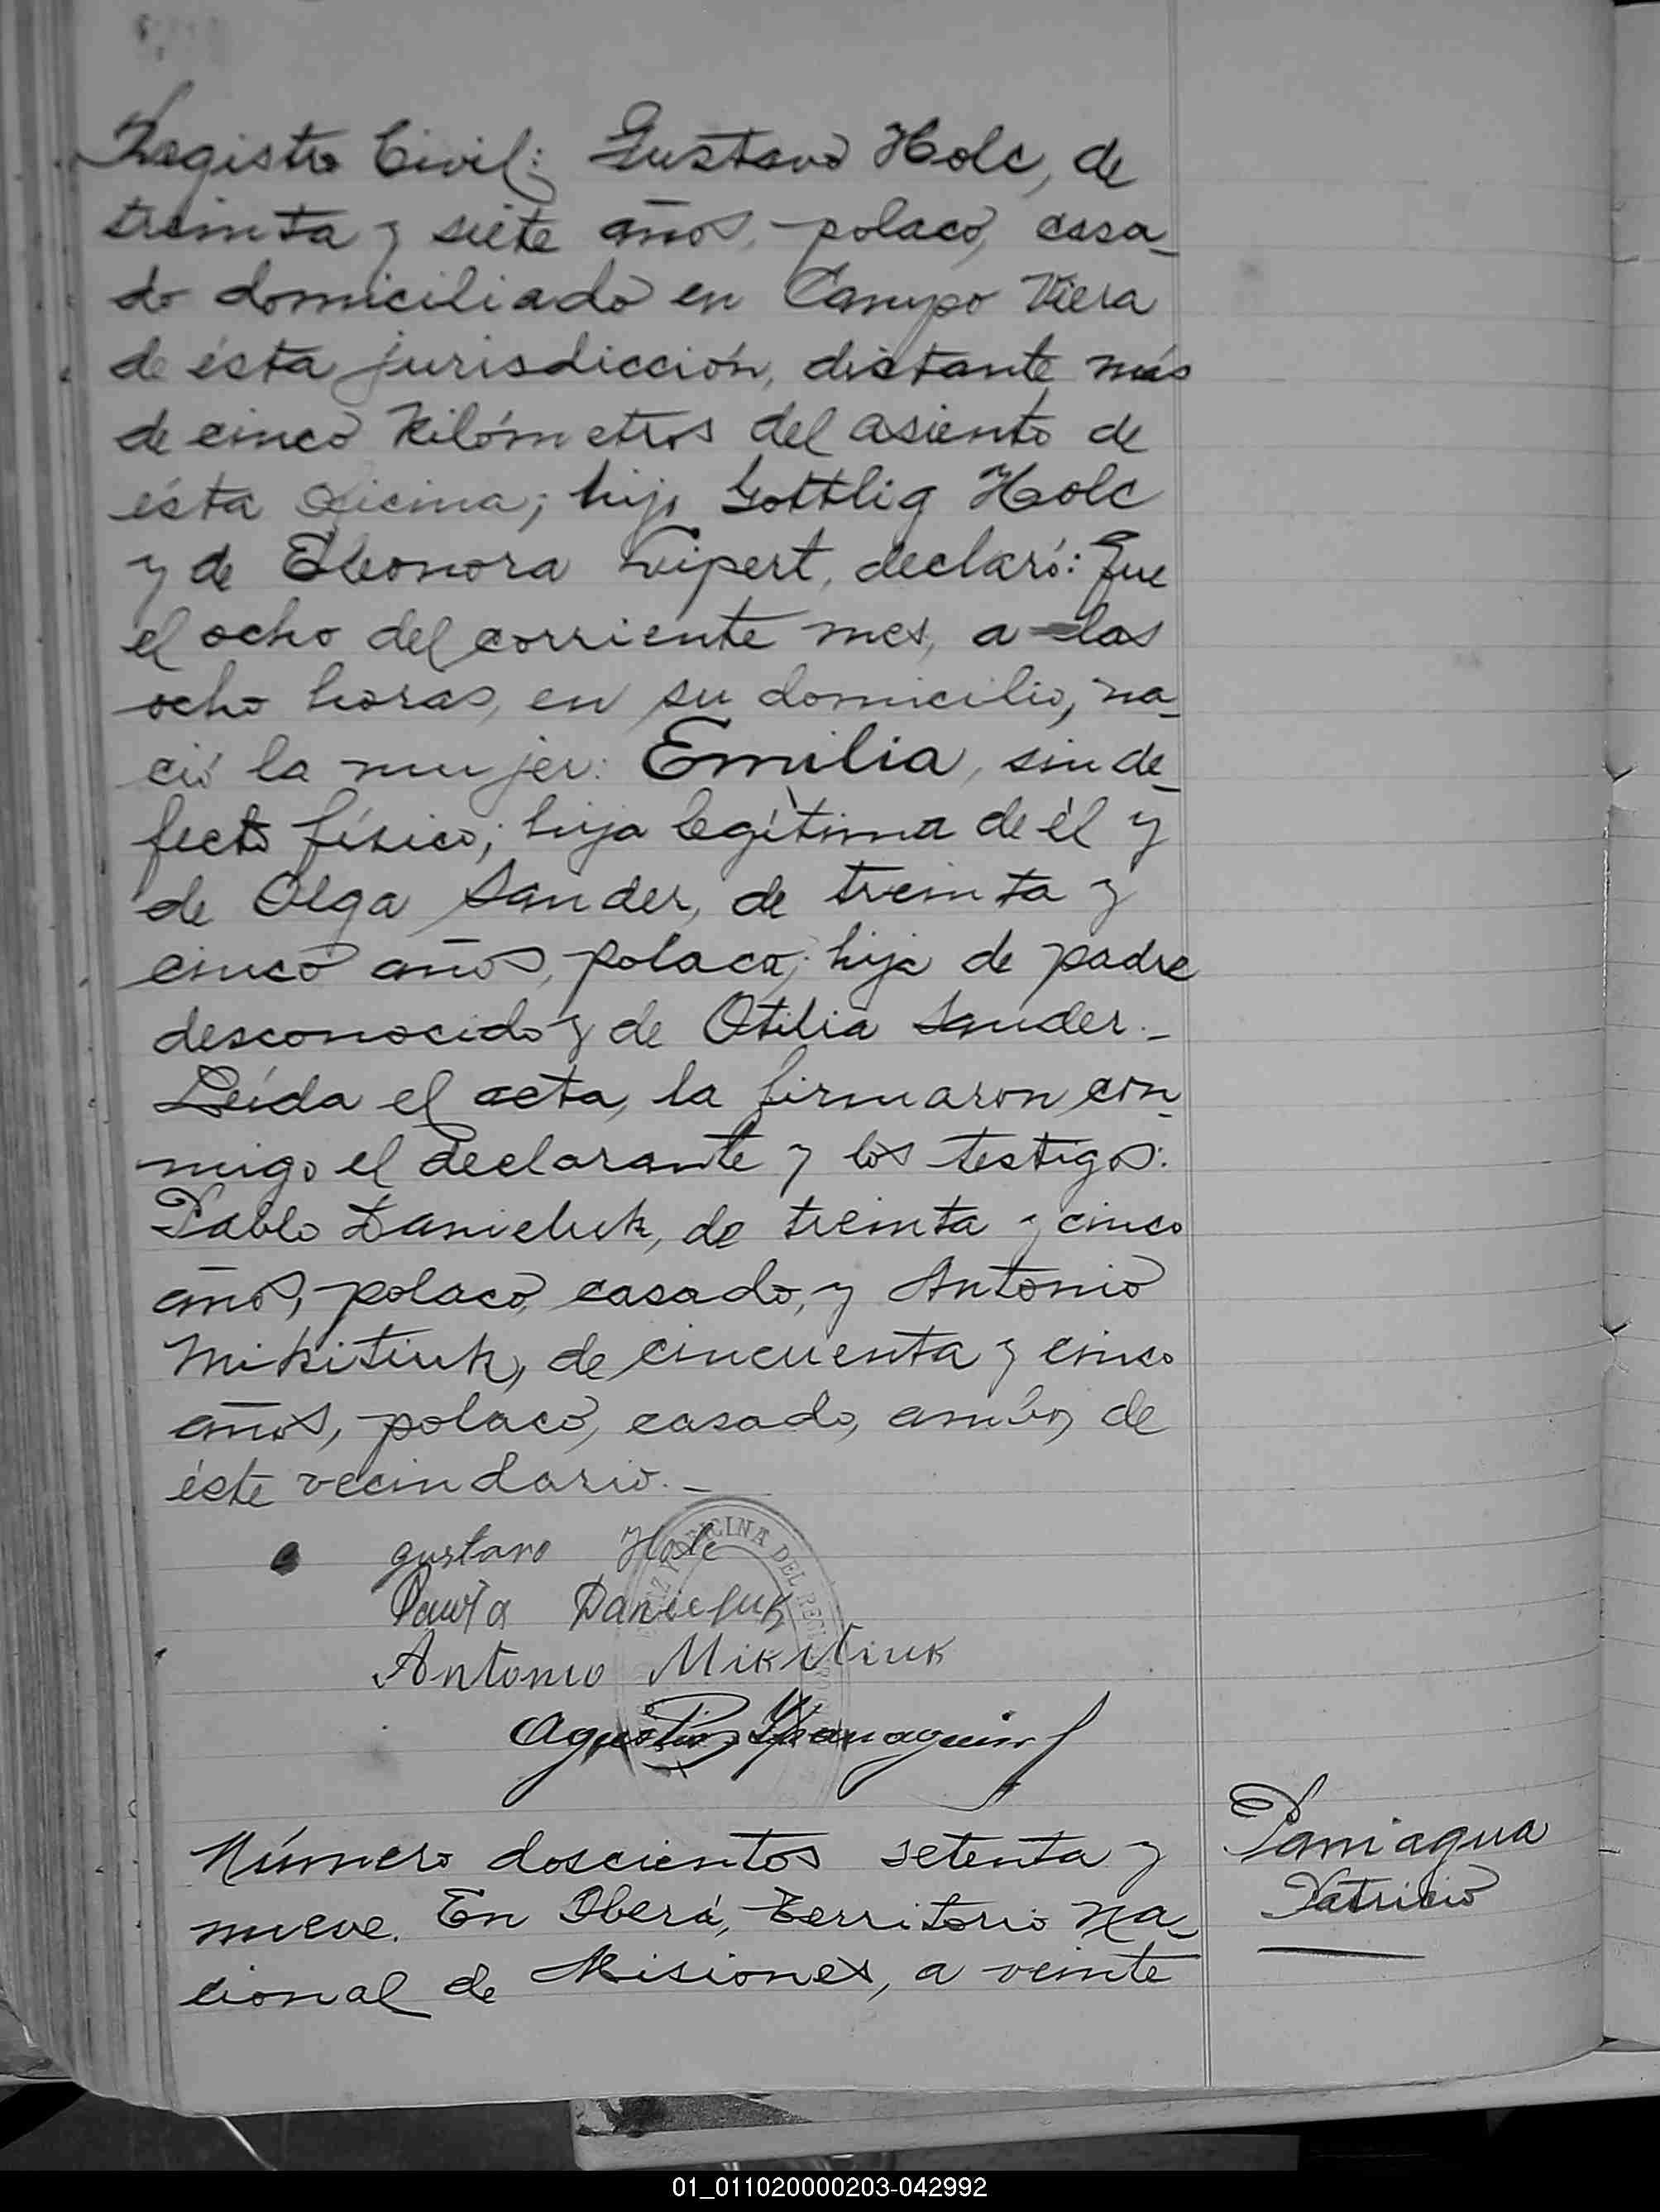 Registro Civil: Gustavo Holc, de
treinta y siete años, polaco, casa-
do domiciliado en Campo Viera
de ésta jurisdicción, distante más
de cinco Kilómetros del asiento de
ésta Oficina; hijo Gottlig Holc
y de Eleonora Leipert, declaró: Que
el ocho del corriente mes, a las
ocho horas, en su domicilio, na-
ció la mujer: Emilia, sin de-
fecto físico; hija legítima de él y
de Olga Sander, de treinta y
cinco años, polaca; hija de padre
desconocido y de Otilia Sander.-
Leída el acta, la firmaron con-
migo el declarante y los testigos:
Pablo Danieluk, de treinta y cinco
años, polaco, casado, y Antonio
Mikitiuk, de cincuenta y cinco
años, polaco, casado, ambos de
éste vecindario.-
gustavo Holc
Danieluk
Antonio Mikitiuk
OFICINA DEL
Agustín
Número doscientos setenta y
nueve. En Oberá, Territorio Na-
cional de Misiones, a veinte
Paniagua
Patricio
01_011020000203-042992